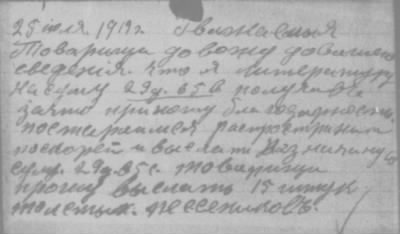 25 июля. 1919 г. Уважаемыя
Товарищи довожу довашего
сведения. что я литературу
на суму 29 д. 65 с получилъ
зачто приношу благодарность.
постараемся распространит
поскорей и выслати
суму. 29 д. 65 с. Товарищи
прошу выслать 15 штук
толстых. песенников.